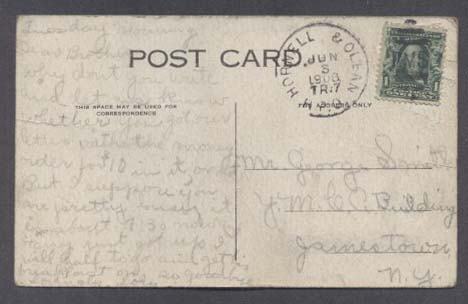 Tuesday Morning
Dear Brother
why don't you write
and let us know
whether you got our
letter with the money
order for $10 in it or not
But I suppose you
are pretty busy it
is about 7:30 now
just got up I
will call to
breakfast so goodbye
POST CARD
THIS SPACE MAY BE USED FOR
CORRESPONDENCE
FOR ADDRESS ONLY
HORNELL & OLEAN
JUN
5
TR.7
Mr. George Smith
Y. M. C. A. Building
Jamestown,
N.Y.